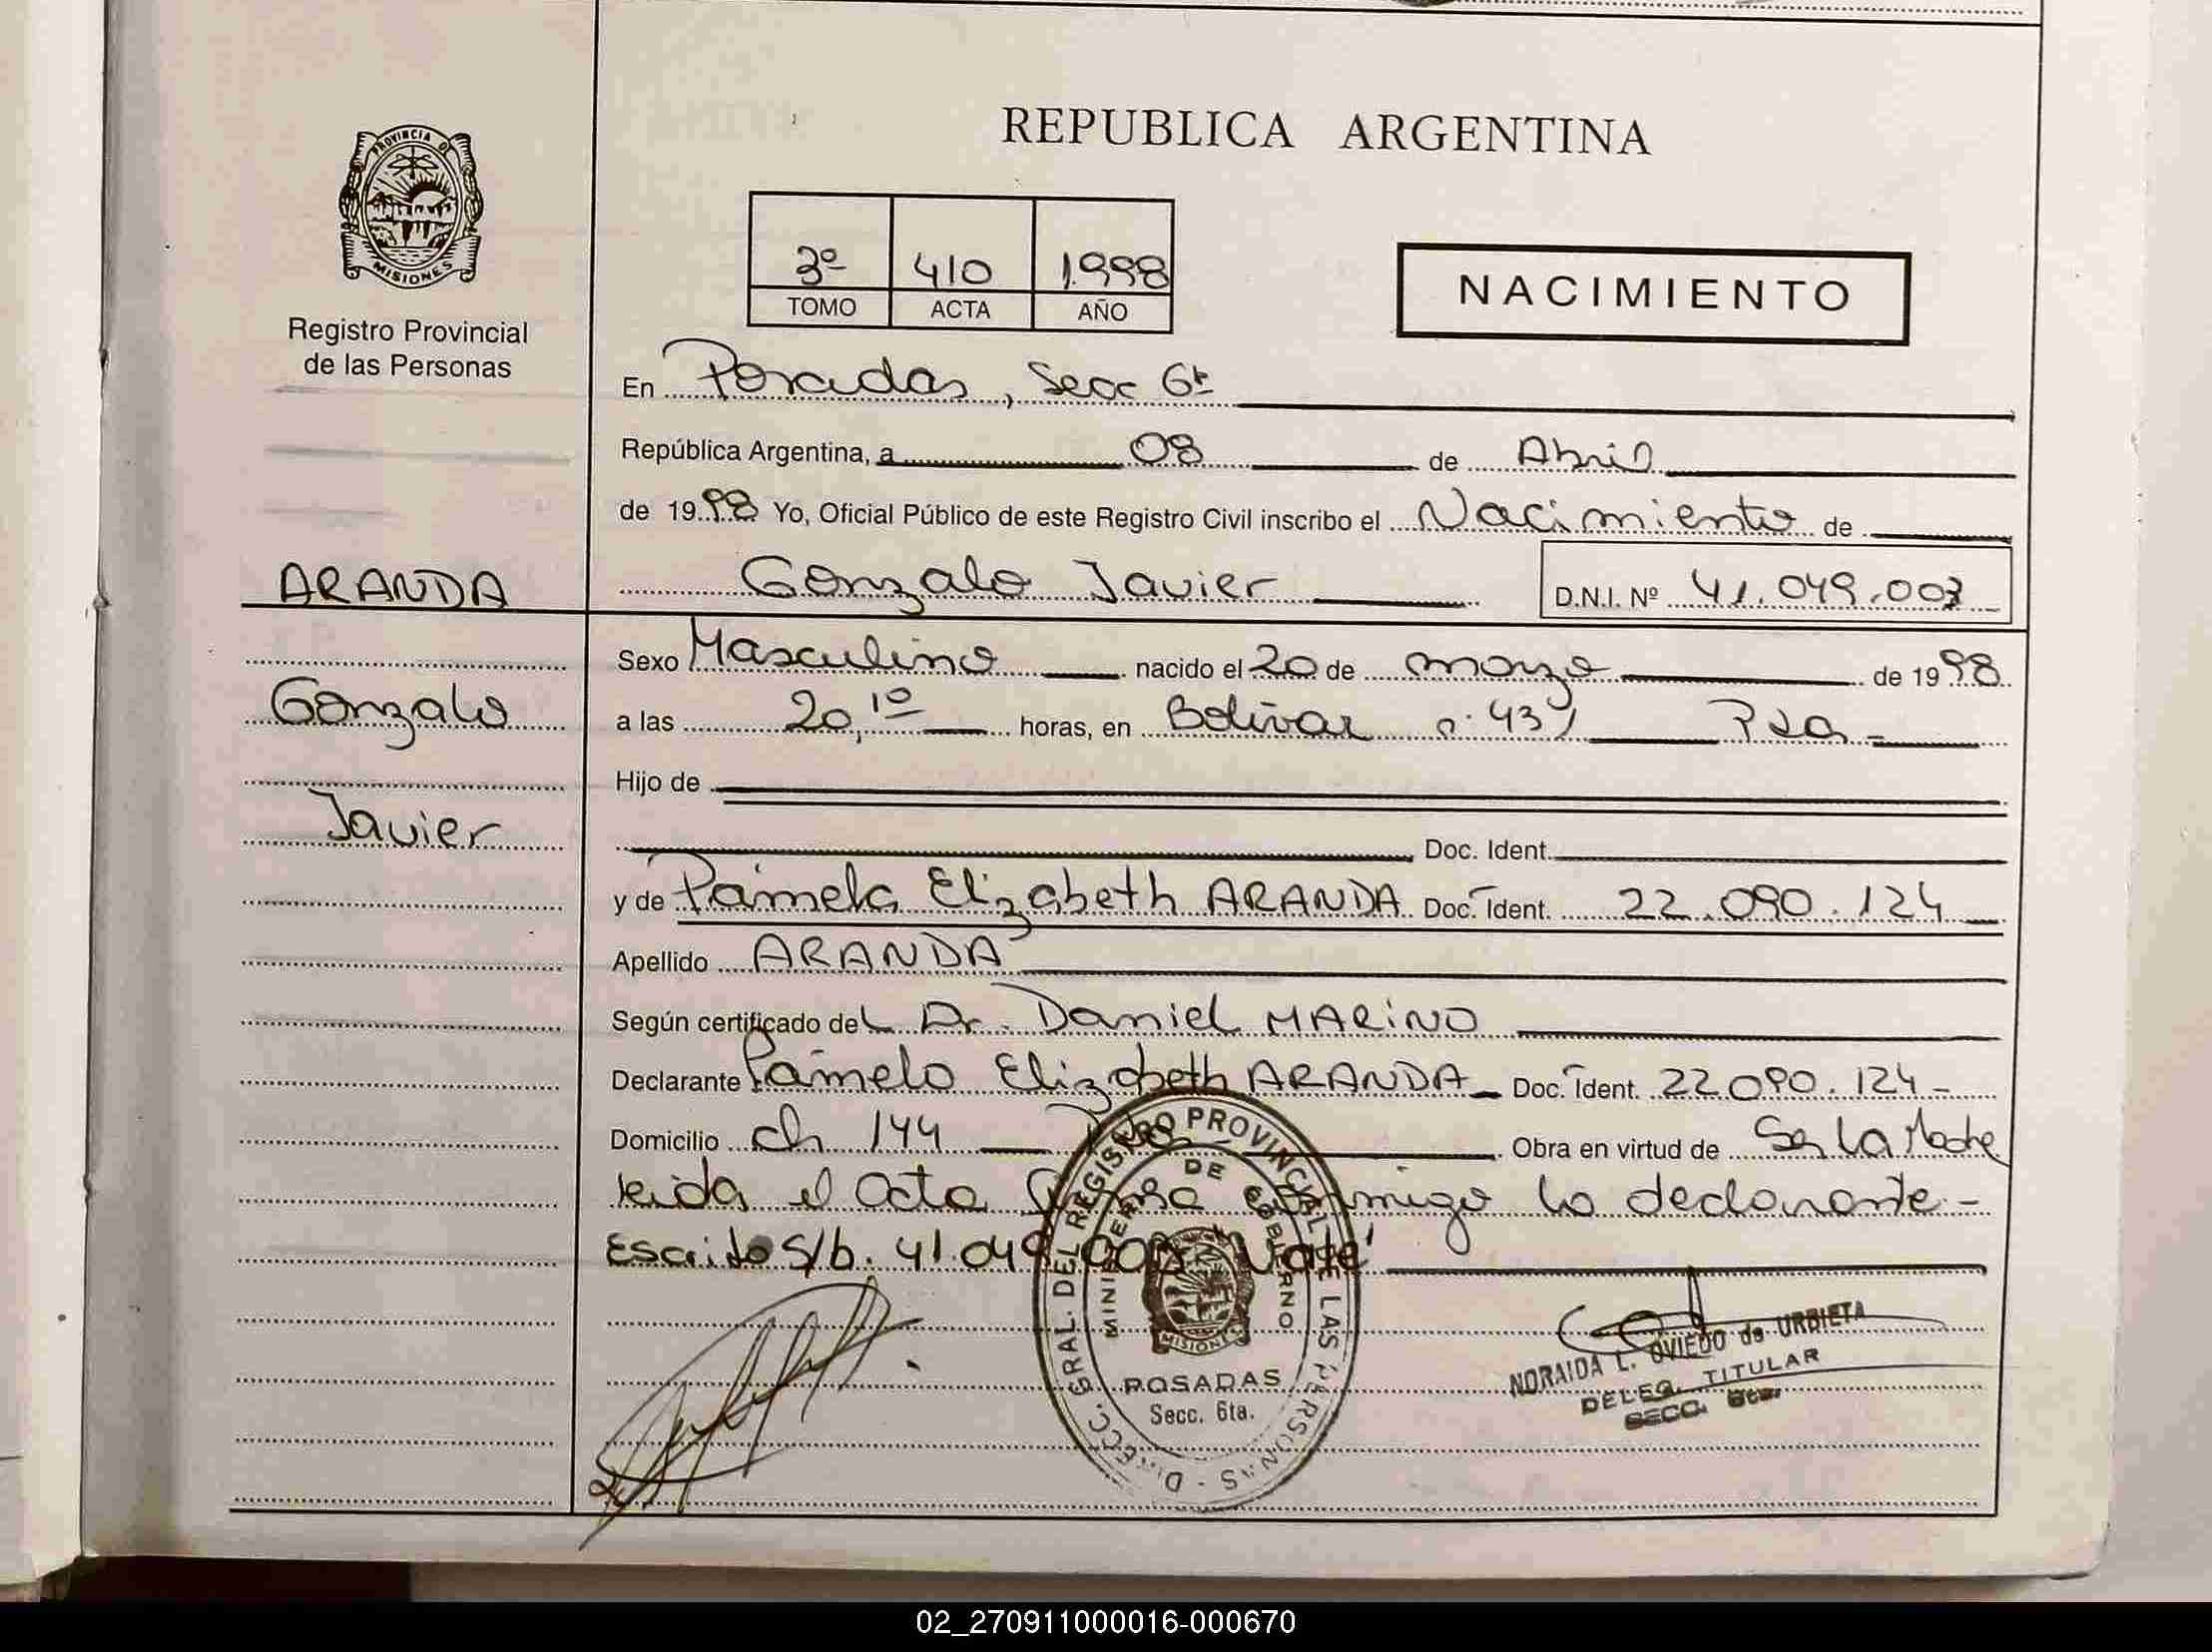 REPUBLICA ARGENTINA
PROVINCIA DE
MISIONES
Registro Provincial
de las Personas
3º 410 1.998
TOMO ACTA AÑO
NACIMIENTO
En Posadas, Secc 6ta
República Argentina, a 08 de Abril
de 1998 Yo, Oficial Público de este Registro Civil inscribo el Nacimiento de
ARANDA
Gonzalo Javier D.N.I. Nº 41.049.003
Sexo Masculino nacido el 20 de marzo de 1998
Gonzalo
a las 20,10 horas, en Bolívar n: 437 Psa -
Hijo de
Javier
Doc. Ident.
y de Pamela Elizabeth ARANDA Doc. Ident. 22.090.124
Apellido ARANDA
Según certificado del Dr. Daniel MARINO
Declarante Pamela Elizabeth ARANDA Doc. Ident. 22090.124-
Domicilio ch 144 Obra en virtud de Ser La Madre
leida el acta firma conmigo la declarante-
Escrito S/b. 41.049.003 Vale
DIRECC. GRAL. DEL REGISTRO PROVINCIAL DE LAS PERSONAS
MINISTERIO DE GOBIERNO
MISIONES
POSADAS
Secc. 6ta.
NORAIDA L. OVIEDO de URBIETA
DELEG. TITULAR
SECC. 6ta.
02_270911000016-000670